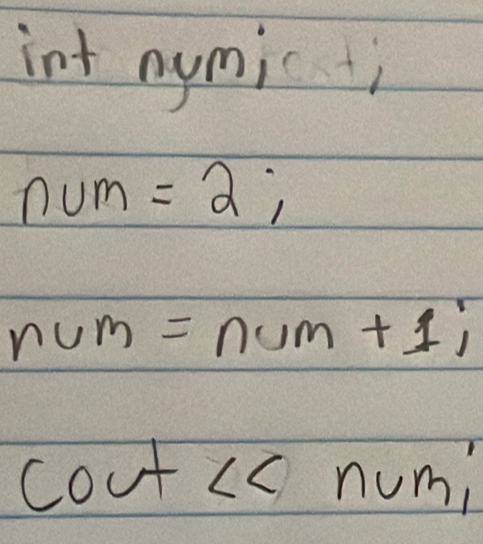 int num;
num = 2;
num = num + 1;
cout << num;